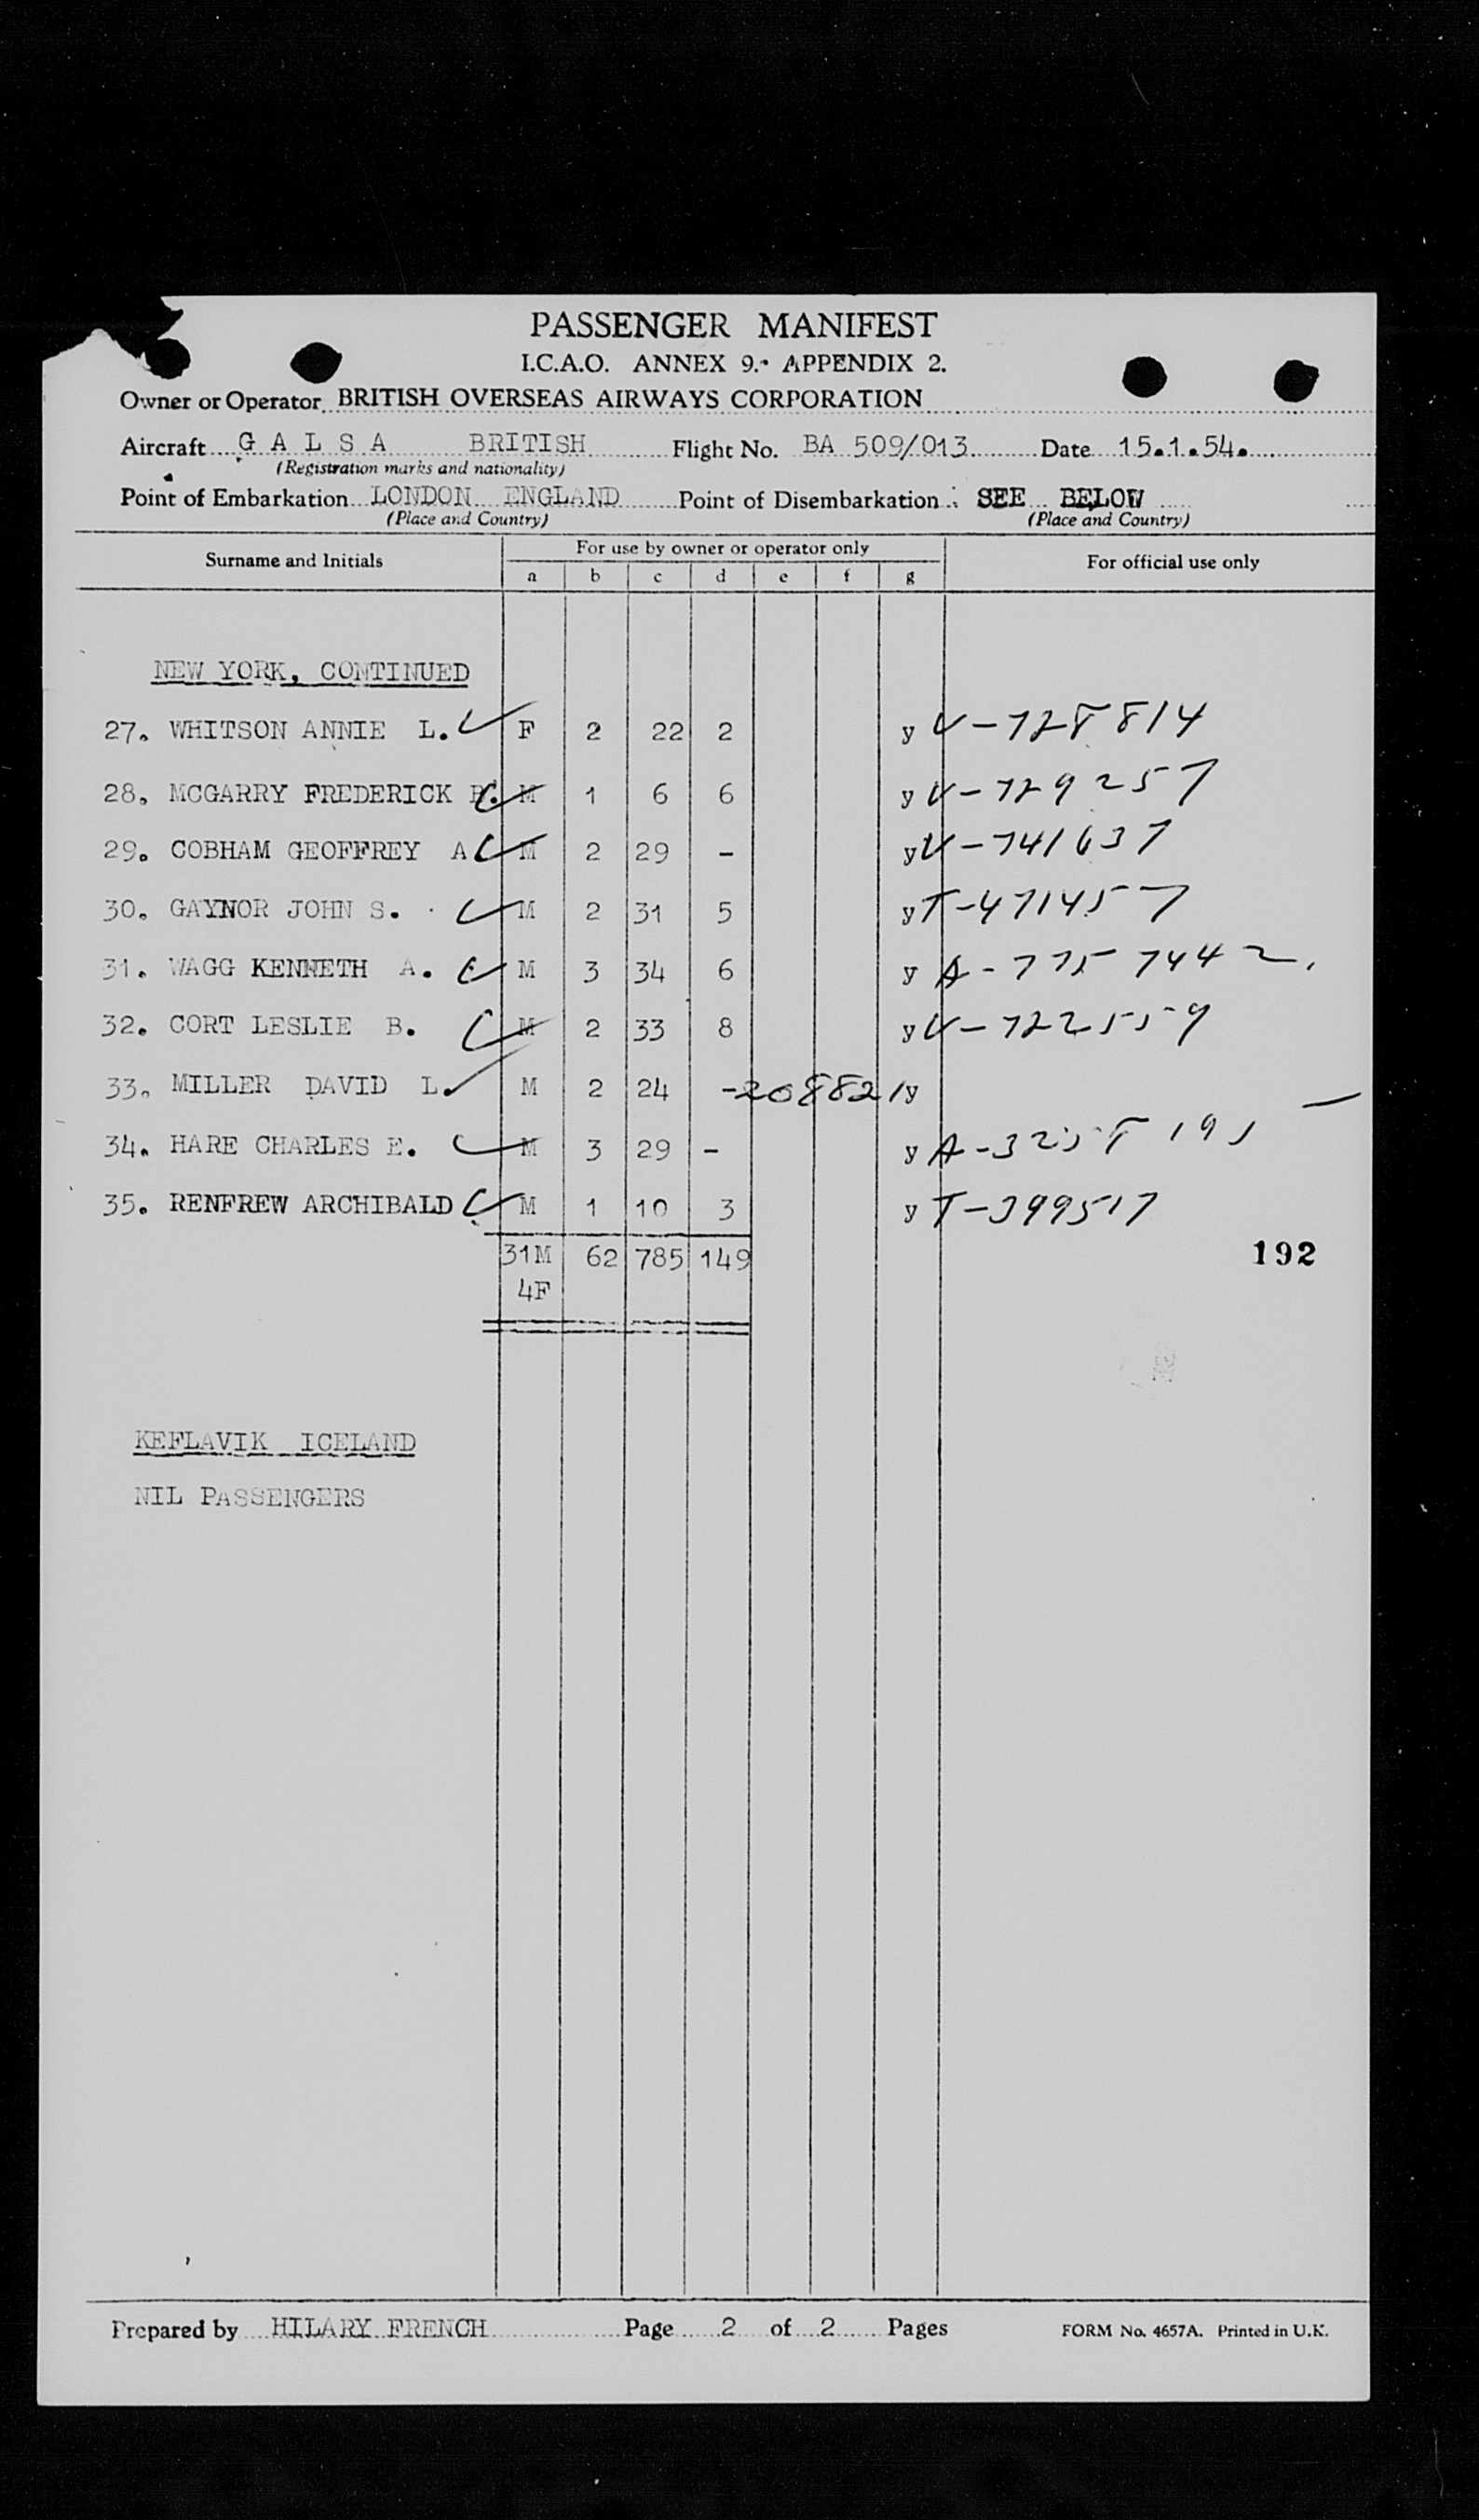 PASSENGER MANIFEST
I.C.A.O. ANNEX 9.- APPENDIX 2.
Owner or Operator BRITISH OVERSEAS AIRWAYS CORPORATION
Aircraft G A L S A BRITISH Flight No. BA 509/013 Date 15.1.54.
(Registration marks and nationality)
Point of Embarkation LONDON ENGLAND Point of Disembarkation : SEE BELOW
(Place and Country) (Place and Country)
Surname and Initials For use by owner or operator only For official use only
a b c d e f g
NEW YORK, CONTINUED
27. WHITSON ANNIE L. F 2 22 2 y V-728814
28. MCGARRY FREDERICK M 1 6 6 y V-729257
29. COBHAM GEOFFREY A M 2 29 - y V-741637
30. GAYNOR JOHN S. M 2 31 5 y T-471457
31. WAGG KENNETH A. M 3 34 6 y A-7757442.
32. CORT LESLIE B. M 2 33 8 y V-722559
33. MILLER DAVID L. M 2 24 - 208821 y
34. HARE CHARLES E. M 3 29 - y
35. RENFREW ARCHIBALD M 1 10 3 y T-399517
31M 62 785 149 192
4F
KEFLAVIK ICELAND
NIL PASSENGERS
Prepared by HILARY FRENCH Page 2 of 2 Pages FORM No. 4657A. Printed in U.K.